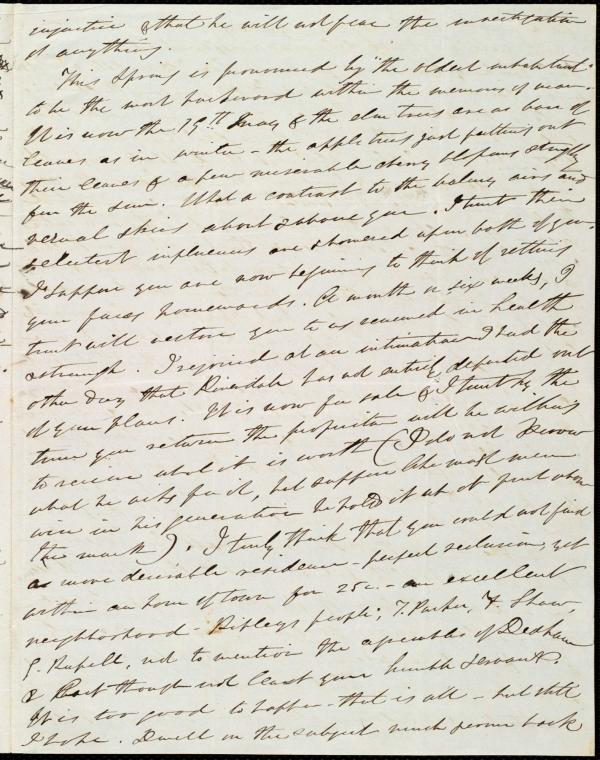 injustice & that he will not fear the investigation
of anything.
This Spring is pronounced by "the oldest inhabitant"
to be the most backward within the memory of man.
It is now the 19th May & the elm trees are as bare of
leaves as in winter - the apple trees just putting out
their leaves & a few miserable cherry blossoms struggle
for the sun. What a contrast to the balmy airs and
vernal skies about & above you. I trust their
selectest influences are showered upon both of you.
I suppose you are now beginning to think of setting
your faces homewards. A month or six weeks, I
trust will restore you to us renewed in health
& strength. I rejoiced at an intimation I had the
other day that Riverdale has not entirely departed out
of your plans. It is now for sale & I trust by the
time you return the proprietor will be willing
to receive what it is worth (I do not know
what he asks for it, but suppose like most men
wise in his generation he holds it at at first above
the mark). I truly think that you could not find
a more desirable residence - perfect seclusion, yet
within an hour of town for 25c. - an excellent
neighborhood - Ripley's people, T. Parker, F. Shaw,
G. Russell, not to mention the agreeables of Dedham
& last though not least your humble servants.
It is too good to happen - that is all - but still
I hope. Dwell on the subject much & come back